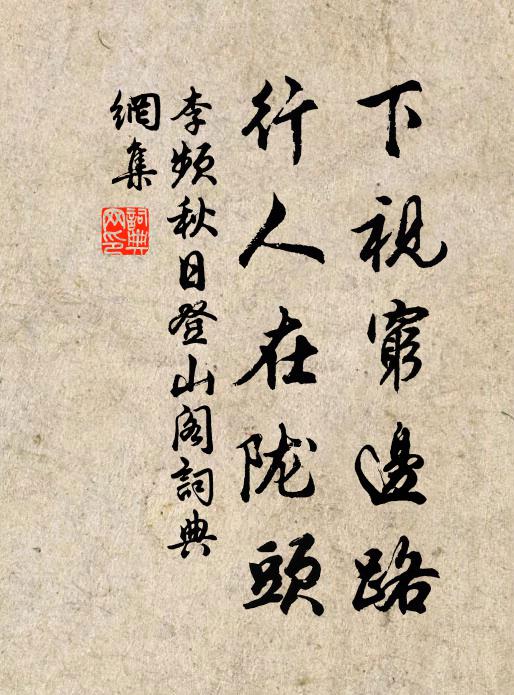 下視窮邊路
行人在陇頭
李頻秋日登山阁詞典
網集
詞典
网印